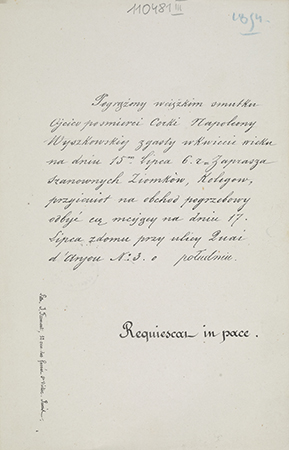 110481 III
1854
Pogrążony w ciężkim smutku
Ojciec po śmierci Corki Napoleony
Wyszkowskiej zgasłej w kwiecie wieku
na dniu 15m Lipca b.r. Zaprasza
szanownych Ziomków, Kolegow,
przyjaciół na obchod pogrzebowy
odbyć się mający na dniu 17.
Lipca z domu przy ulicy Quai
d'Anjou No. 3. o południu.
Requiescat in pace.